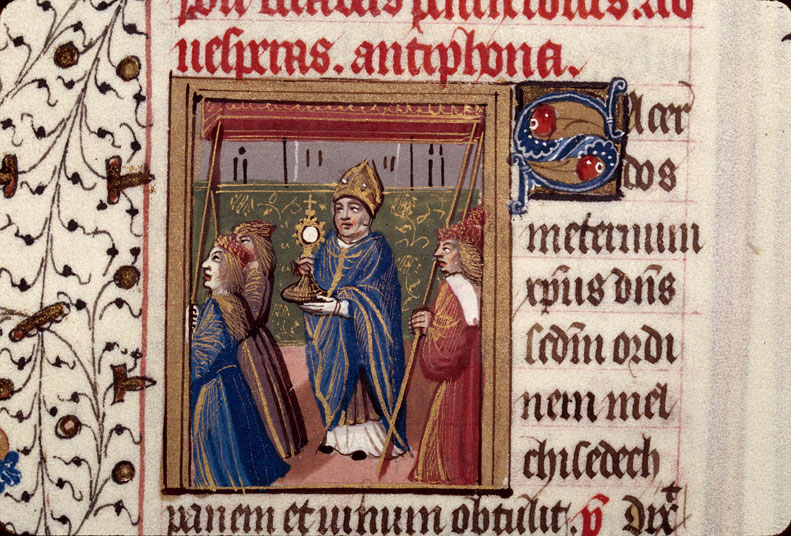 uesperas. antiphona.
Sacer
dos
ineternum
xp̄us dn̄s
sedm̄ ordi
nem mel
chisedech
panem et uinum obtulit. p̄ Dix̄t